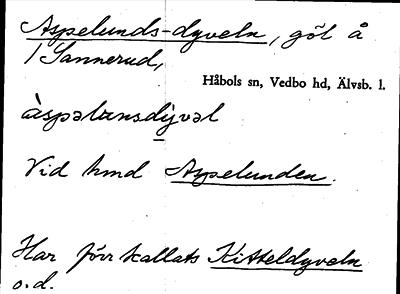 Aspelunds-dyveln, göl å
/ Sannerud,
Håbols sn, Vedbo hd, Älvsb. l.
àspəlunsdỳvəl
Vid hmd Aspelunden.
Har förr kallats Kitteldyveln
o.d.